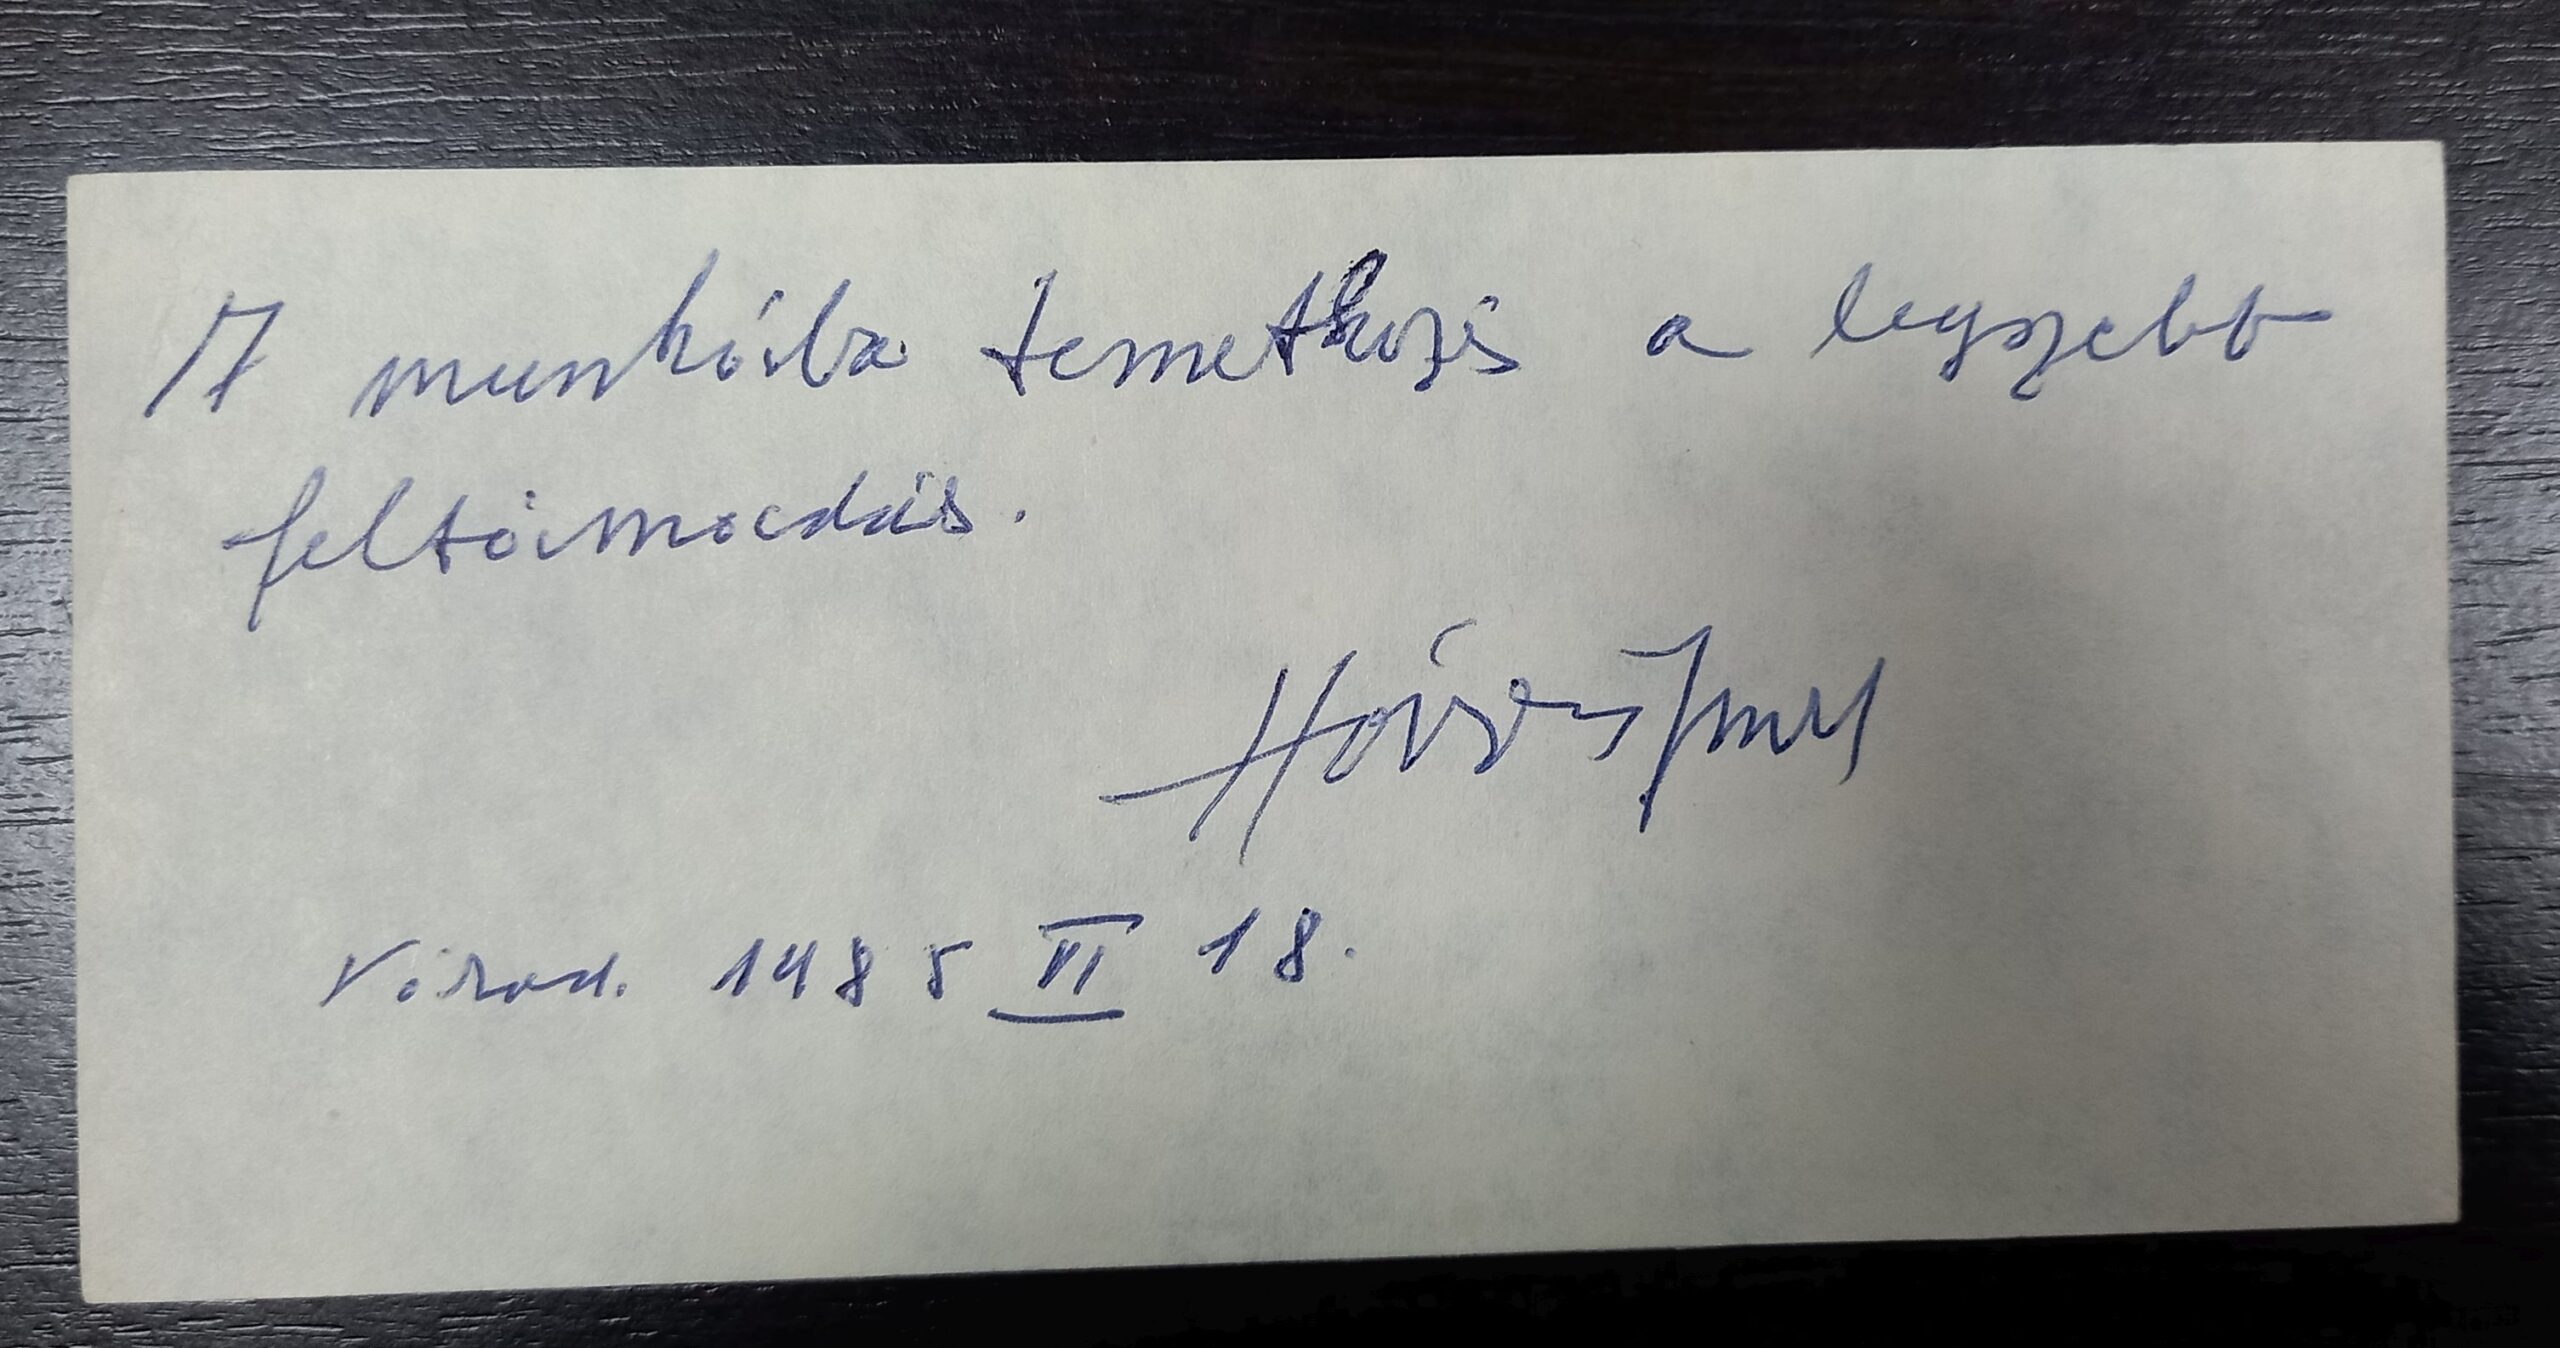 A munkába temetkezés a legszebb
feltámadás.
Horváth Imre
Várad. 1985 VI 18.